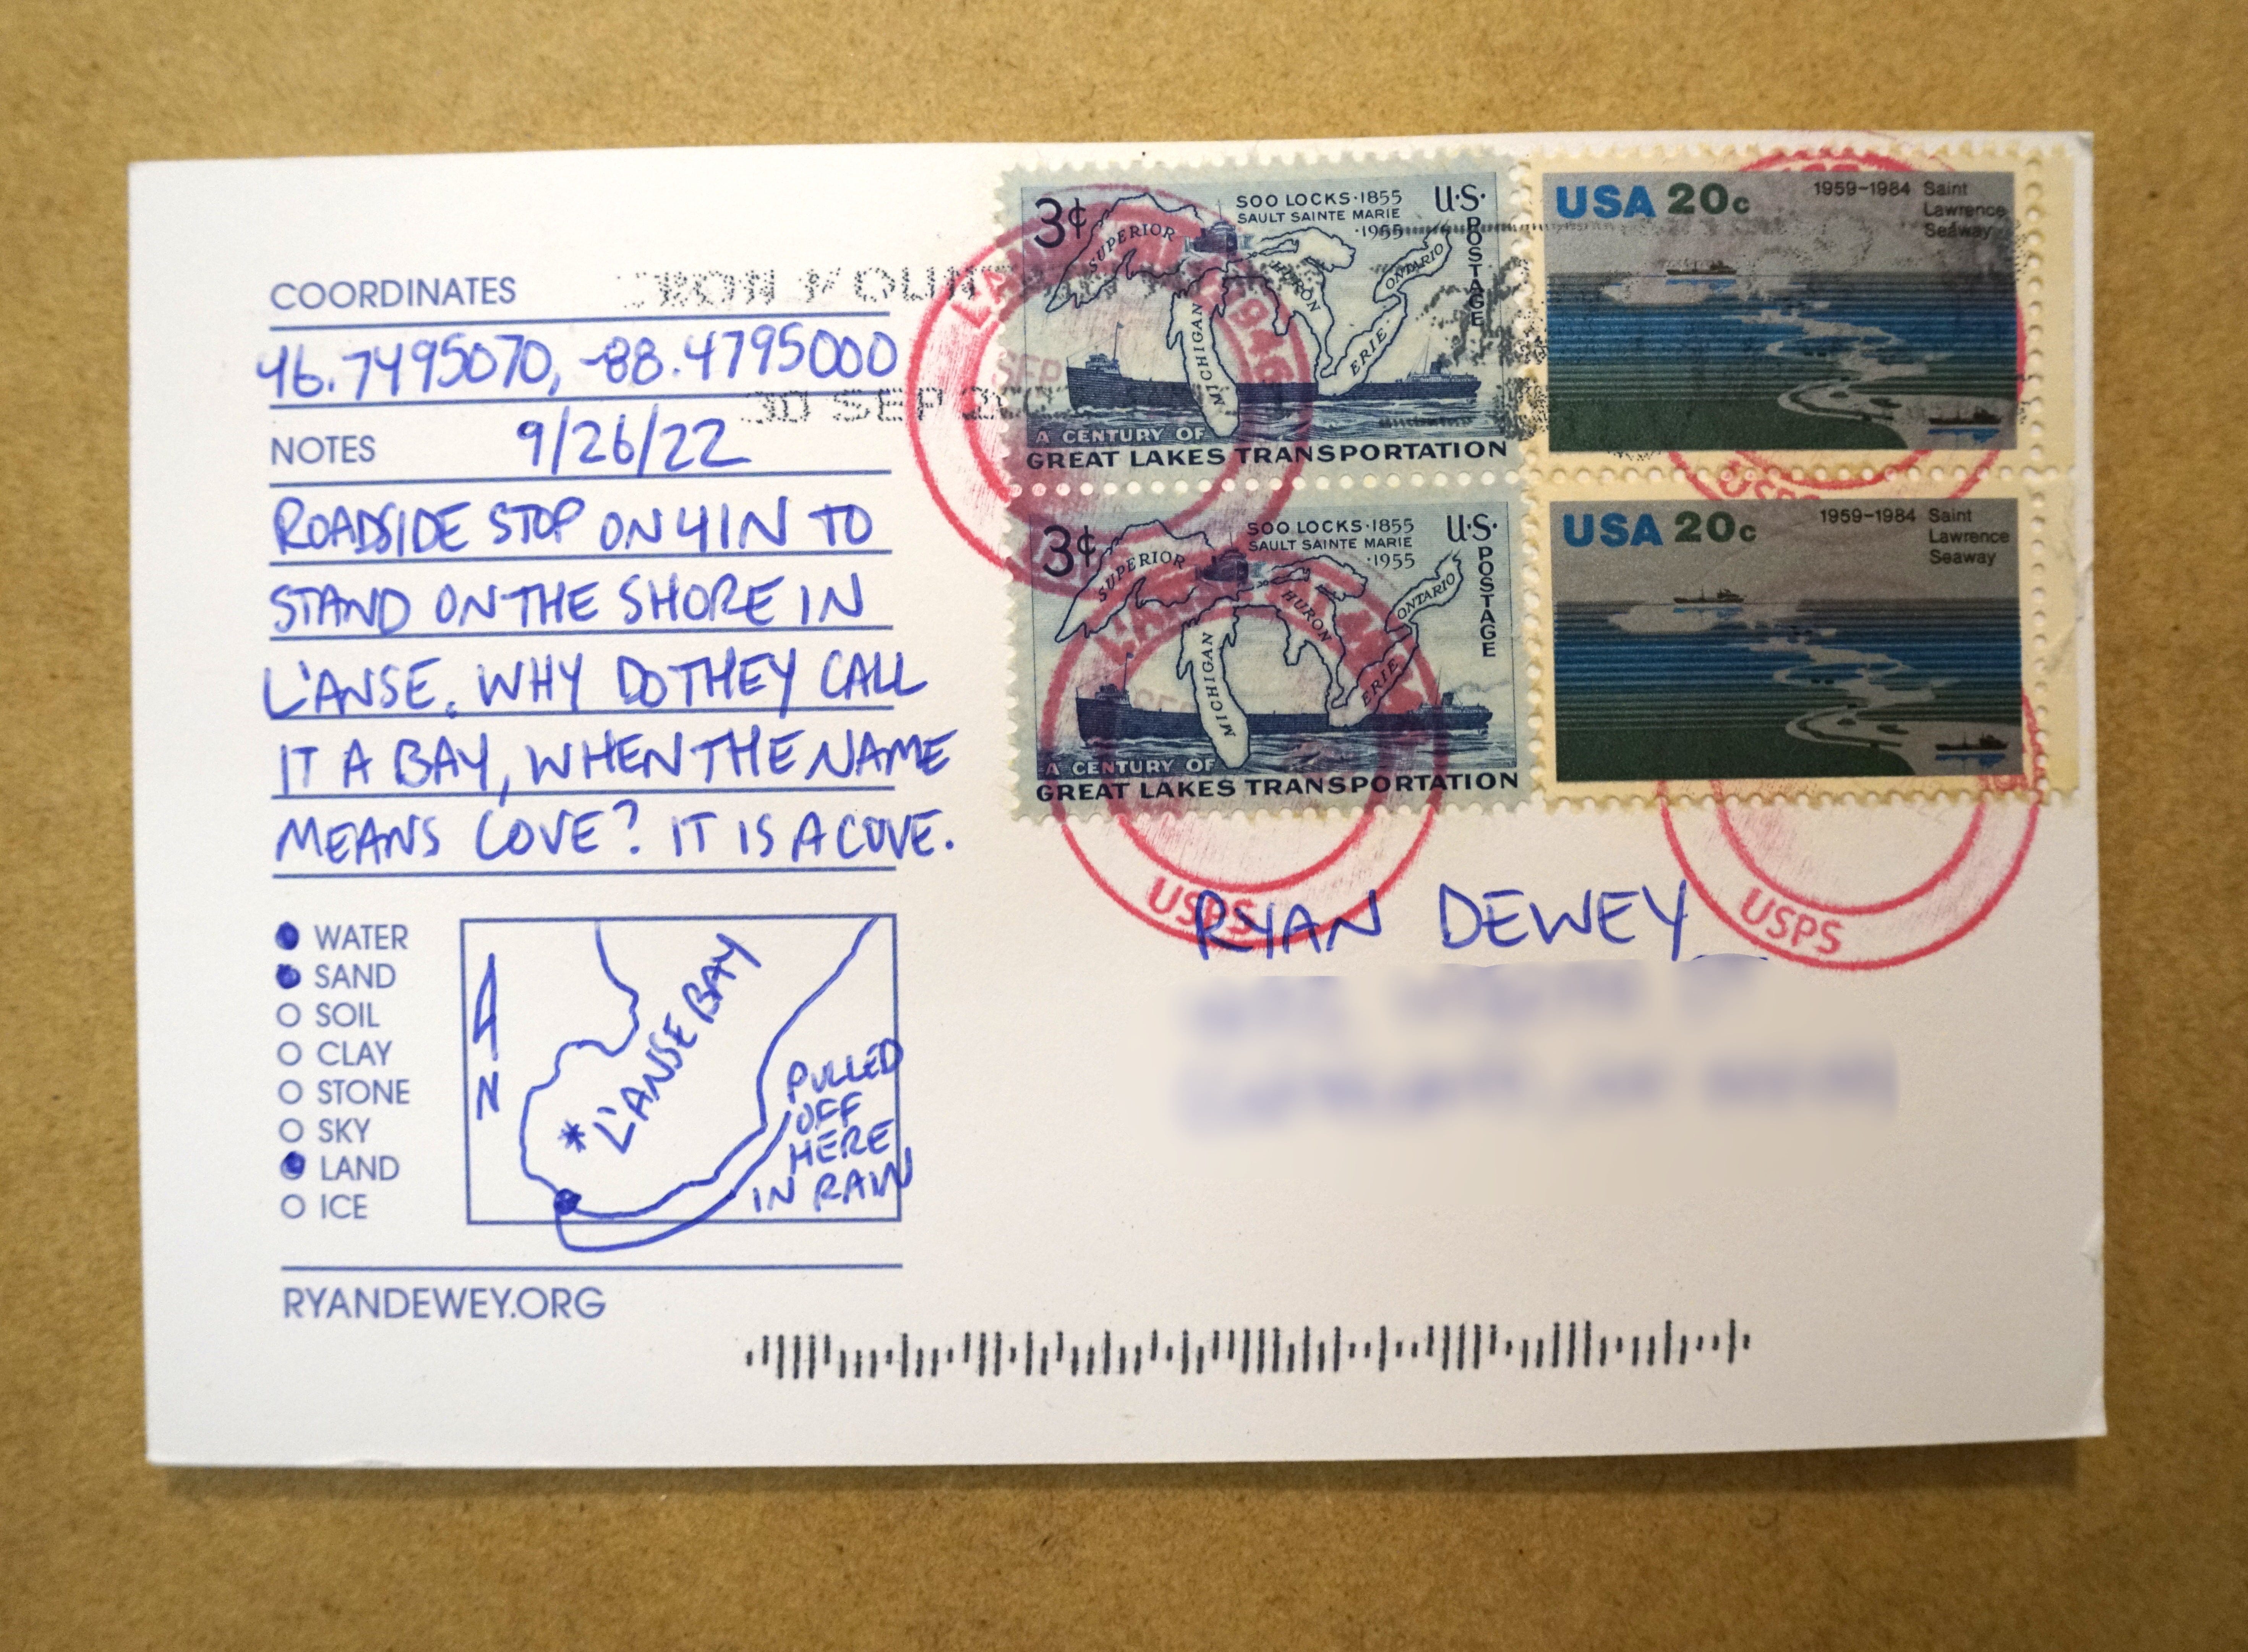 COORDINATES
46.7495070, -88.4795000
NOTES 9/26/22
ROADSIDE STOP ON 41N TO
STAND ON THE SHORE IN
L'ANSE. WHY DO THEY CALL
IT A BAY, WHEN THE NAME
MEANS COVE? IT IS A COVE.
WATER
SAND
SOIL
CLAY
STONE
SKY
LAND
ICE
N
L'ANSE BAY
PULLED
OFF
HERE
IN RAIN
RYANDEWEY.ORG
30 SEP
3¢
SOO LOCKS·1855
SAULT SAINTE MARIE
·1955
U.S.
POSTAGE
SUPERIOR
MICHIGAN
HURON
ONTARIO
ERIE
A CENTURY OF
GREAT LAKES TRANSPORTATION
USA 20c
1959–1984 Saint
Lawrence
Seaway
USPS
3¢
SOO LOCKS·1855
SAULT SAINTE MARIE
·1955
U.S.
POSTAGE
SUPERIOR
MICHIGAN
HURON
ONTARIO
ERIE
A CENTURY OF
GREAT LAKES TRANSPORTATION
USA 20c
1959–1984 Saint
Lawrence
Seaway
USPS
USPS
RYAN DEWEY